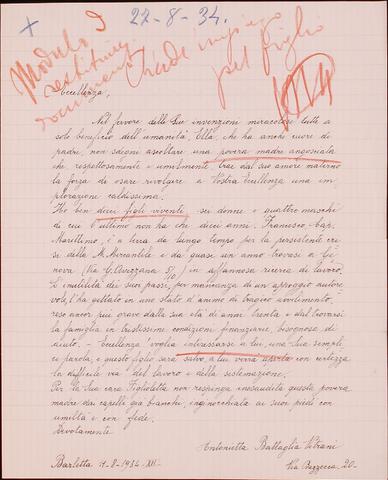 22-8-34.
Modulo
restituire
documenti
Chiede impiego
pel figlio
Eccellenza,
Nel fervore delle Sue invenzioni miracolose tutte a
solo beneficio dell'umanità Ella, che ha anche cuore di
padre, non sdegni ascoltare una povera madre angosciata
che rispettosamente e umilmente trae dal suo amore materno
la forza di osare rivolgere a Vostra Eccellenza una im-
plorazione caldissima.
Ho ben dieci figli viventi sei donne e quattro maschi
di cui l'ultimo non ha che dieci anni. Francesco, Cap.
Marittimo, è a terra da lungo tempo per la persistente cri-
si della M. Mercantile e da quasi un anno trovasi a Ge-
nova (Via G. Avezzana 5/10) in affannosa ricerca di lavoro.
L'inutilità dei suoi passi, per mancanza di un appoggio autore-
vole, l'ha gettato in uno stato d'animo di tragico avvilimento,
reso ancor più grave dalla sua età di anni trenta e dal trovarsi
la famiglia in tristissime condizioni finanziarie, bisognosa di
aiuto. - Eccellenza voglia interessarsi a lui, una Sua sempli-
ce parola, e questo figlio sarà salvo, a lui verrà aperta con certezza
la difficile via del lavoro e della sistemazione.
Per la Sua cara Figlioletta non respinga inesaudita questa povera
madre dai capelli già bianchi, inginocchiata ai suoi piedi con
umiltà e con fede.
Devotamente
Antonietta Battaglia Vitrani
Barletta 11-8-1934-XII- Via Bezzecca 20-